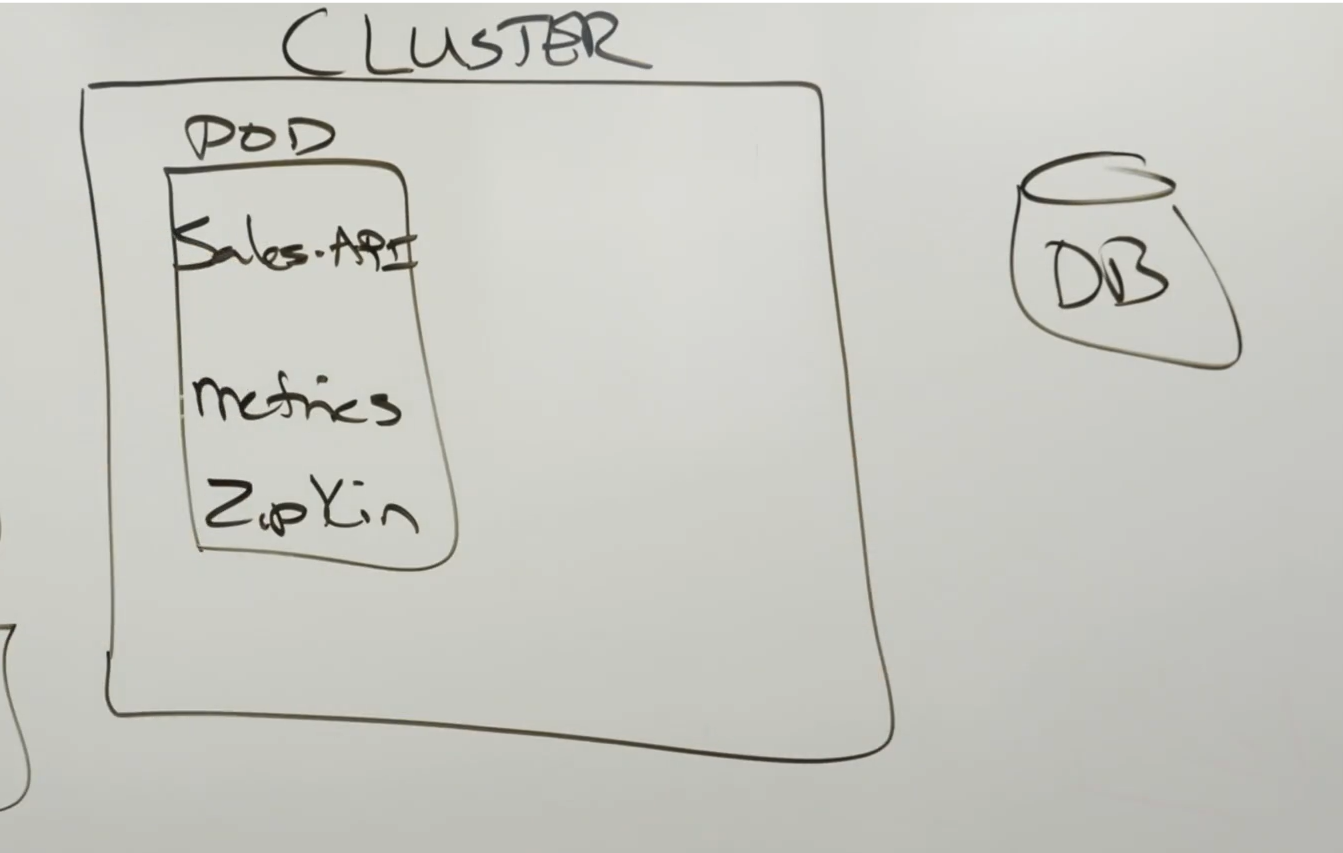 CLUSTER
POD
Sales-API
metrics
ZipKin
DB